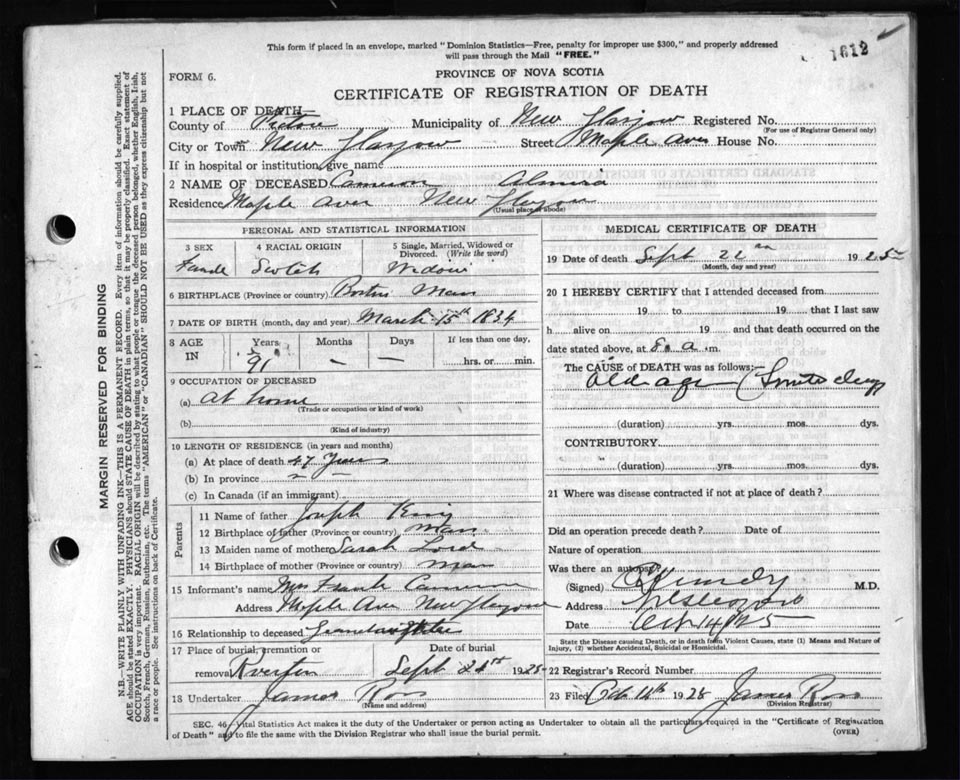 This form if placed in an envelope, marked "Dominion Statistics—Free, penalty for improper use $300," and properly addressed
will pass through the Mail "FREE."
1612
FORM 6.
PROVINCE OF NOVA SCOTIA
CERTIFICATE OF REGISTRATION OF DEATH
1 PLACE OF DEATH—
County of Pictou Municipality of New Glasgow Registered No.
(For use of Registrar General only)
City or Town New Glasgow Street Maple Ave House No.
If in hospital or institution, give name
2 NAME OF DECEASED Cameron Almira
Residence Maple Ave New Glasgow
(Usual place of abode)
PERSONAL AND STATISTICAL INFORMATION
3 SEX 4 RACIAL ORIGIN 5 Single, Married, Widowed or
Divorced. (Write the word)
Female Scotch Widow
6 BIRTHPLACE (Province or country) Boston Mass
7 DATE OF BIRTH (month, day and year) March 15th 1834
8 AGE
IN
Years Months Days If less than one day,
91 — — hrs. or min.
9 OCCUPATION OF DECEASED
(a) At home
(Trade or occupation or kind of work)
(b)
(Kind of industry)
10 LENGTH OF RESIDENCE (in years and months)
(a) At place of death 47 Years
(b) In province
(c) In Canada (if an immigrant)
Parents
11 Name of father Joseph King
12 Birthplace of father (Province or country) Mass
13 Maiden name of mother Sarah Lord
14 Birthplace of mother (Province or country) Mass
15 Informant's name Mrs Frank Cameron
Address Maple Ave New Glasgow
16 Relationship to deceased
17 Place of burial, cremation or Date of burial
removal Riverton Sept 24th 1925
18 Undertaker James Ross
(Name and address)
MEDICAL CERTIFICATE OF DEATH
19 Date of death Sept 22nd 1925
(Month, day and year)
20 I HEREBY CERTIFY that I attended deceased from
19 to 19 that I last saw
h alive on 19 and that death occurred on
date stated above, at 8. a .m.
The CAUSE of DEATH was as follows:—
Old age
(duration) yrs. mos. dys.
CONTRIBUTORY
(duration) yrs. mos. dys.
21 Where was disease contracted if not at place of death?
Did an operation precede death? Date of
Nature of operation
Was there an autopsy?
(Signed) M.D.
Address
Date Oct 14 1925
State the Disease causing Death, or in death from Violent Causes, state (1) Means and Nature of
Injury, (2) whether Accidental, Suicidal or Homicidal.
22 Registrar's Record Number
23 Filed Oct 14th 1925 James Ross
(Division Registrar)
SEC. 46—Vital Statistics Act makes it the duty of the Undertaker or person acting as Undertaker to obtain all the particulars required in the "Certificate of Registration
of Death" and to file the same with the Division Registrar who shall issue the burial permit.
(OVER)
MARGIN RESERVED FOR BINDING
N.B.—WRITE PLAINLY WITH UNFADING INK—THIS IS A PERMANENT RECORD. Every item of information should be carefully supplied.
AGE should be stated EXACTLY. PHYSICIANS should STATE CAUSE OF DEATH in plain terms, so that it may be properly classified. Exact statement of
OCCUPATION is very important. RACIAL ORIGIN will be described by stating to what people or tongue the deceased person belonged, whether English, Irish,
Scotch, French, German, Russian, Ruthenian, etc. The terms "AMERICAN" or "CANADIAN" SHOULD NOT BE USED as they express citizenship but not
a race or people. See instructions on back of Certificate.